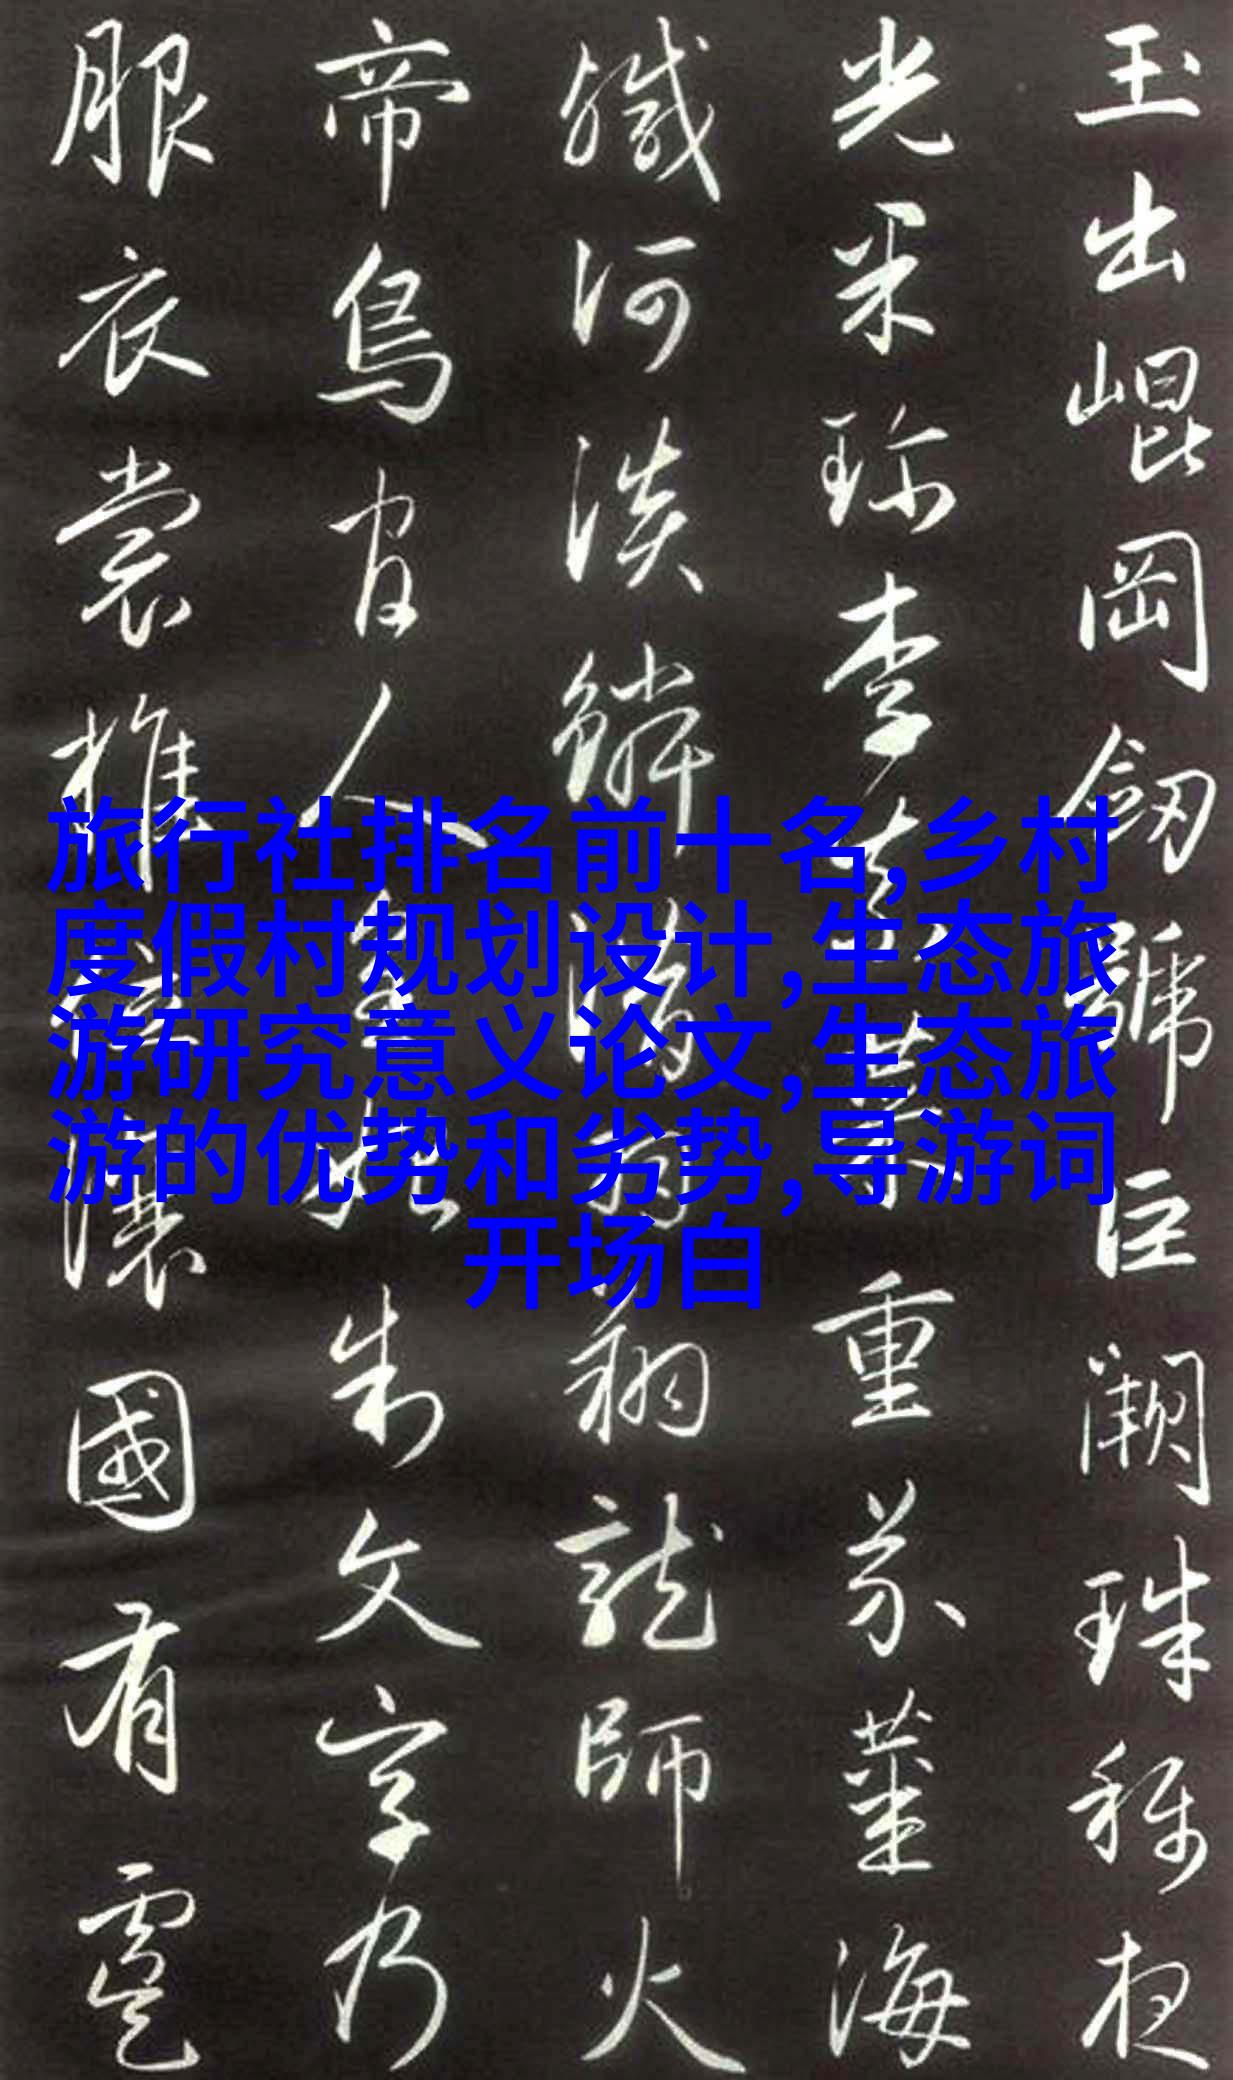 玉出崐岡劔號巨闕珠稱夜
光果珍李柰菜重芥薑海
鹹河淡鱗潛羽翔龍師火
帝鳥官人皇始制文字乃
服衣裳推位讓國有虞
旅行社排名前十名,乡村
度假村规划设计,生态旅
游研究意义论文,生态旅
游的优势和劣势,导游词
开场白